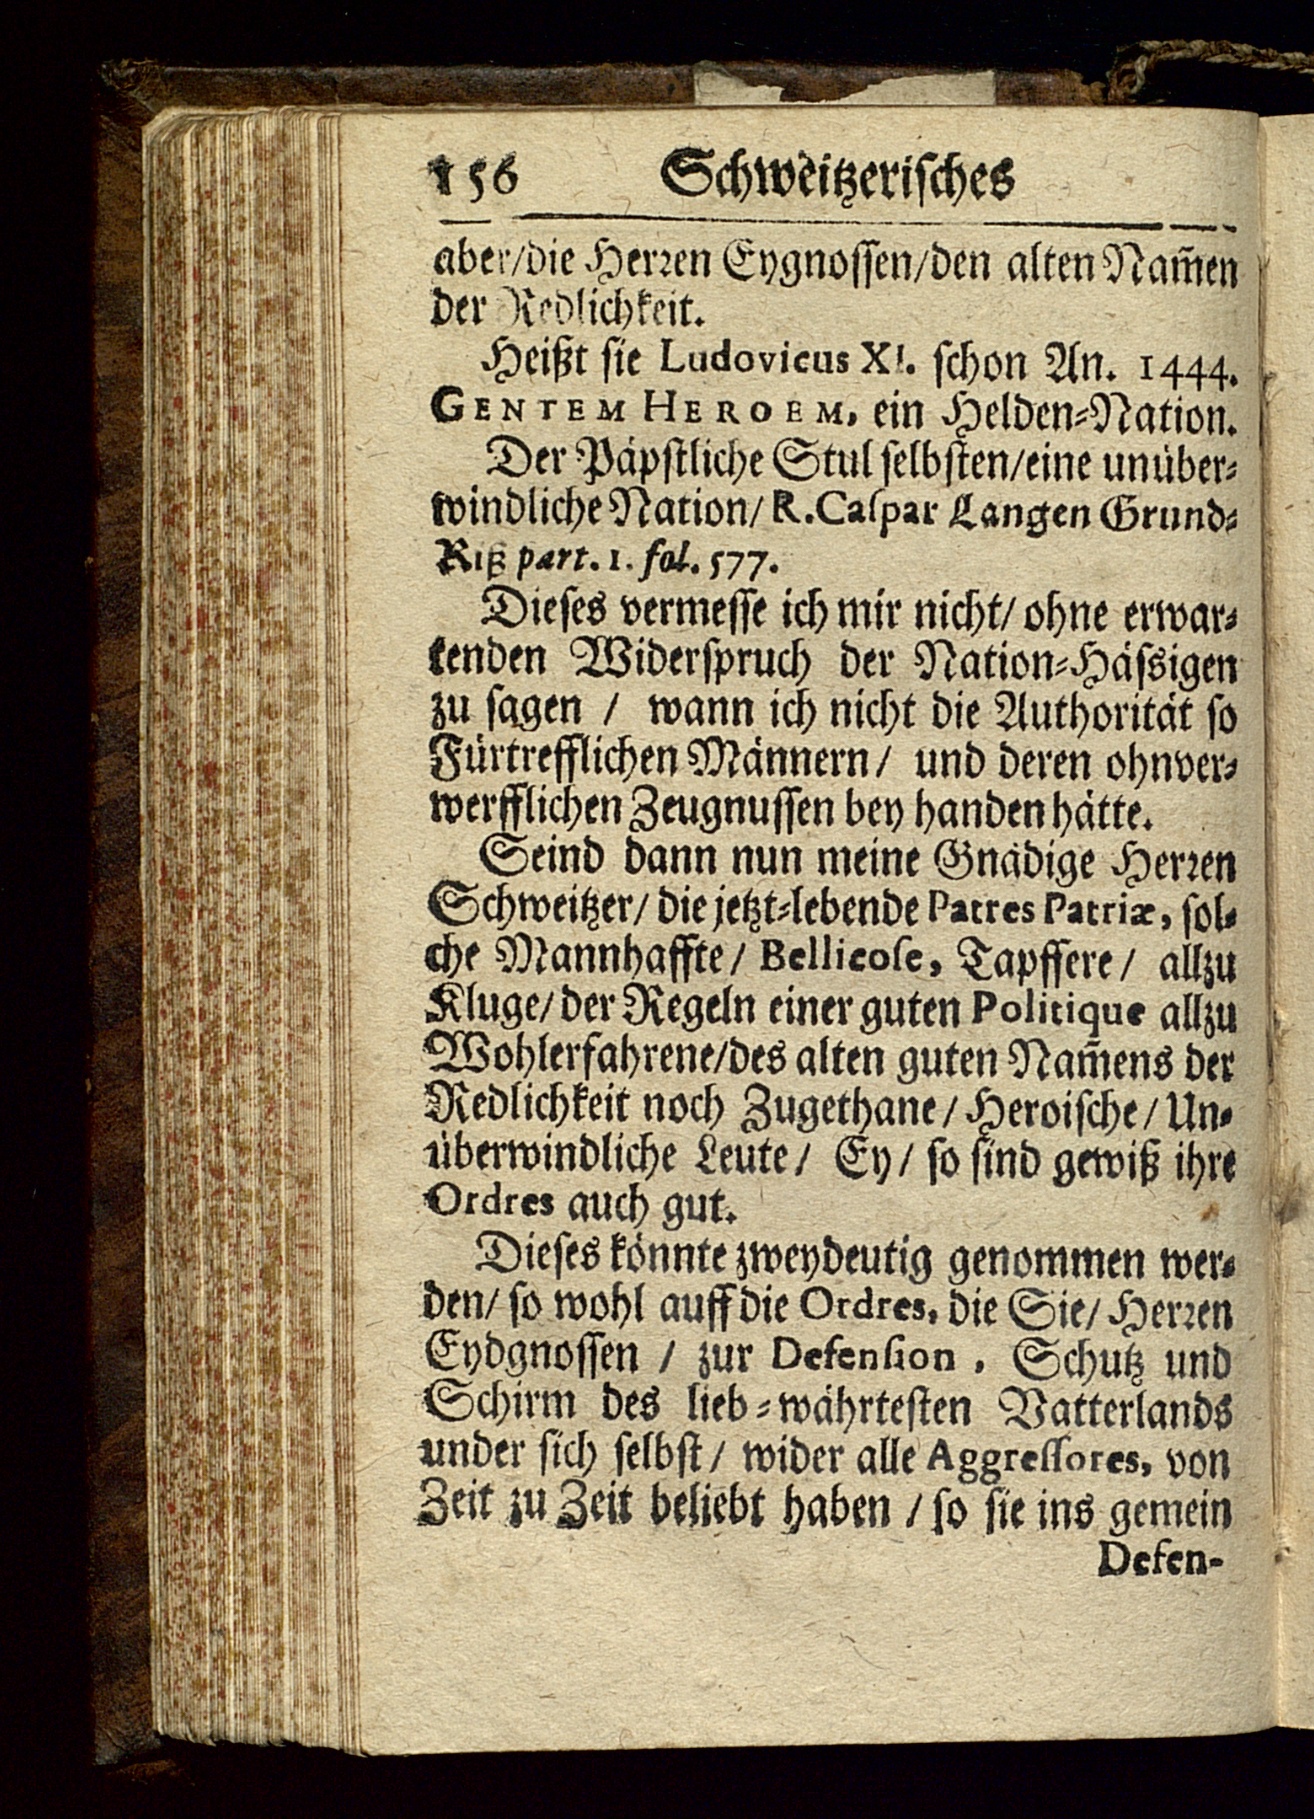 156 Schweitzerisches
aber/die Herꝛen Eygnossen/den alten Nam̃en
der Redlichkeit.
Heißt sie Ludovicus XI. schon An. 1444.
GENTEM HEROEM, ein Helden-Nation.
Der Päpstliche Stul selbsten/eine unüber-
windliche Nation/ R. Caspar Langen Grund-
Riß part. 1. fol. 577.
Dieses vermesse ich mir nicht/ ohne erwar-
tenden Widerspruch der Nation-Hässigen
zu sagen / wann ich nicht die Authorität so
Fürtrefflichen Männern/ und deren ohnver-
werfflichen Zeugnussen bey handen hätte.
Seind dann nun meine Gnädige Herꝛen
Schweitzer/ die jetzt-lebende Patres Patriæ, sol-
che Mannhaffte/ Bellicose, Tapffere/ allzu
Kluge/ der Regeln einer guten Politique allzu
Wohlerfahrene/des alten guten Nam̃ens der
Redlichkeit noch Zugethane/ Heroische/ Un-
überwindliche Leute/ Ey/ so sind gewiß ihre
Ordres auch gut.
Dieses könnte zweydeutig genommen wer-
den/ so wohl auff die Ordres, die Sie/ Herꝛen
Eydgnossen / zur Defension, Schutz und
Schirm des lieb-währtesten Vatterlands
under sich selbst/ wider alle Aggressores, von
Zeit zu Zeit beliebt haben / so sie ins gemein
Defen-